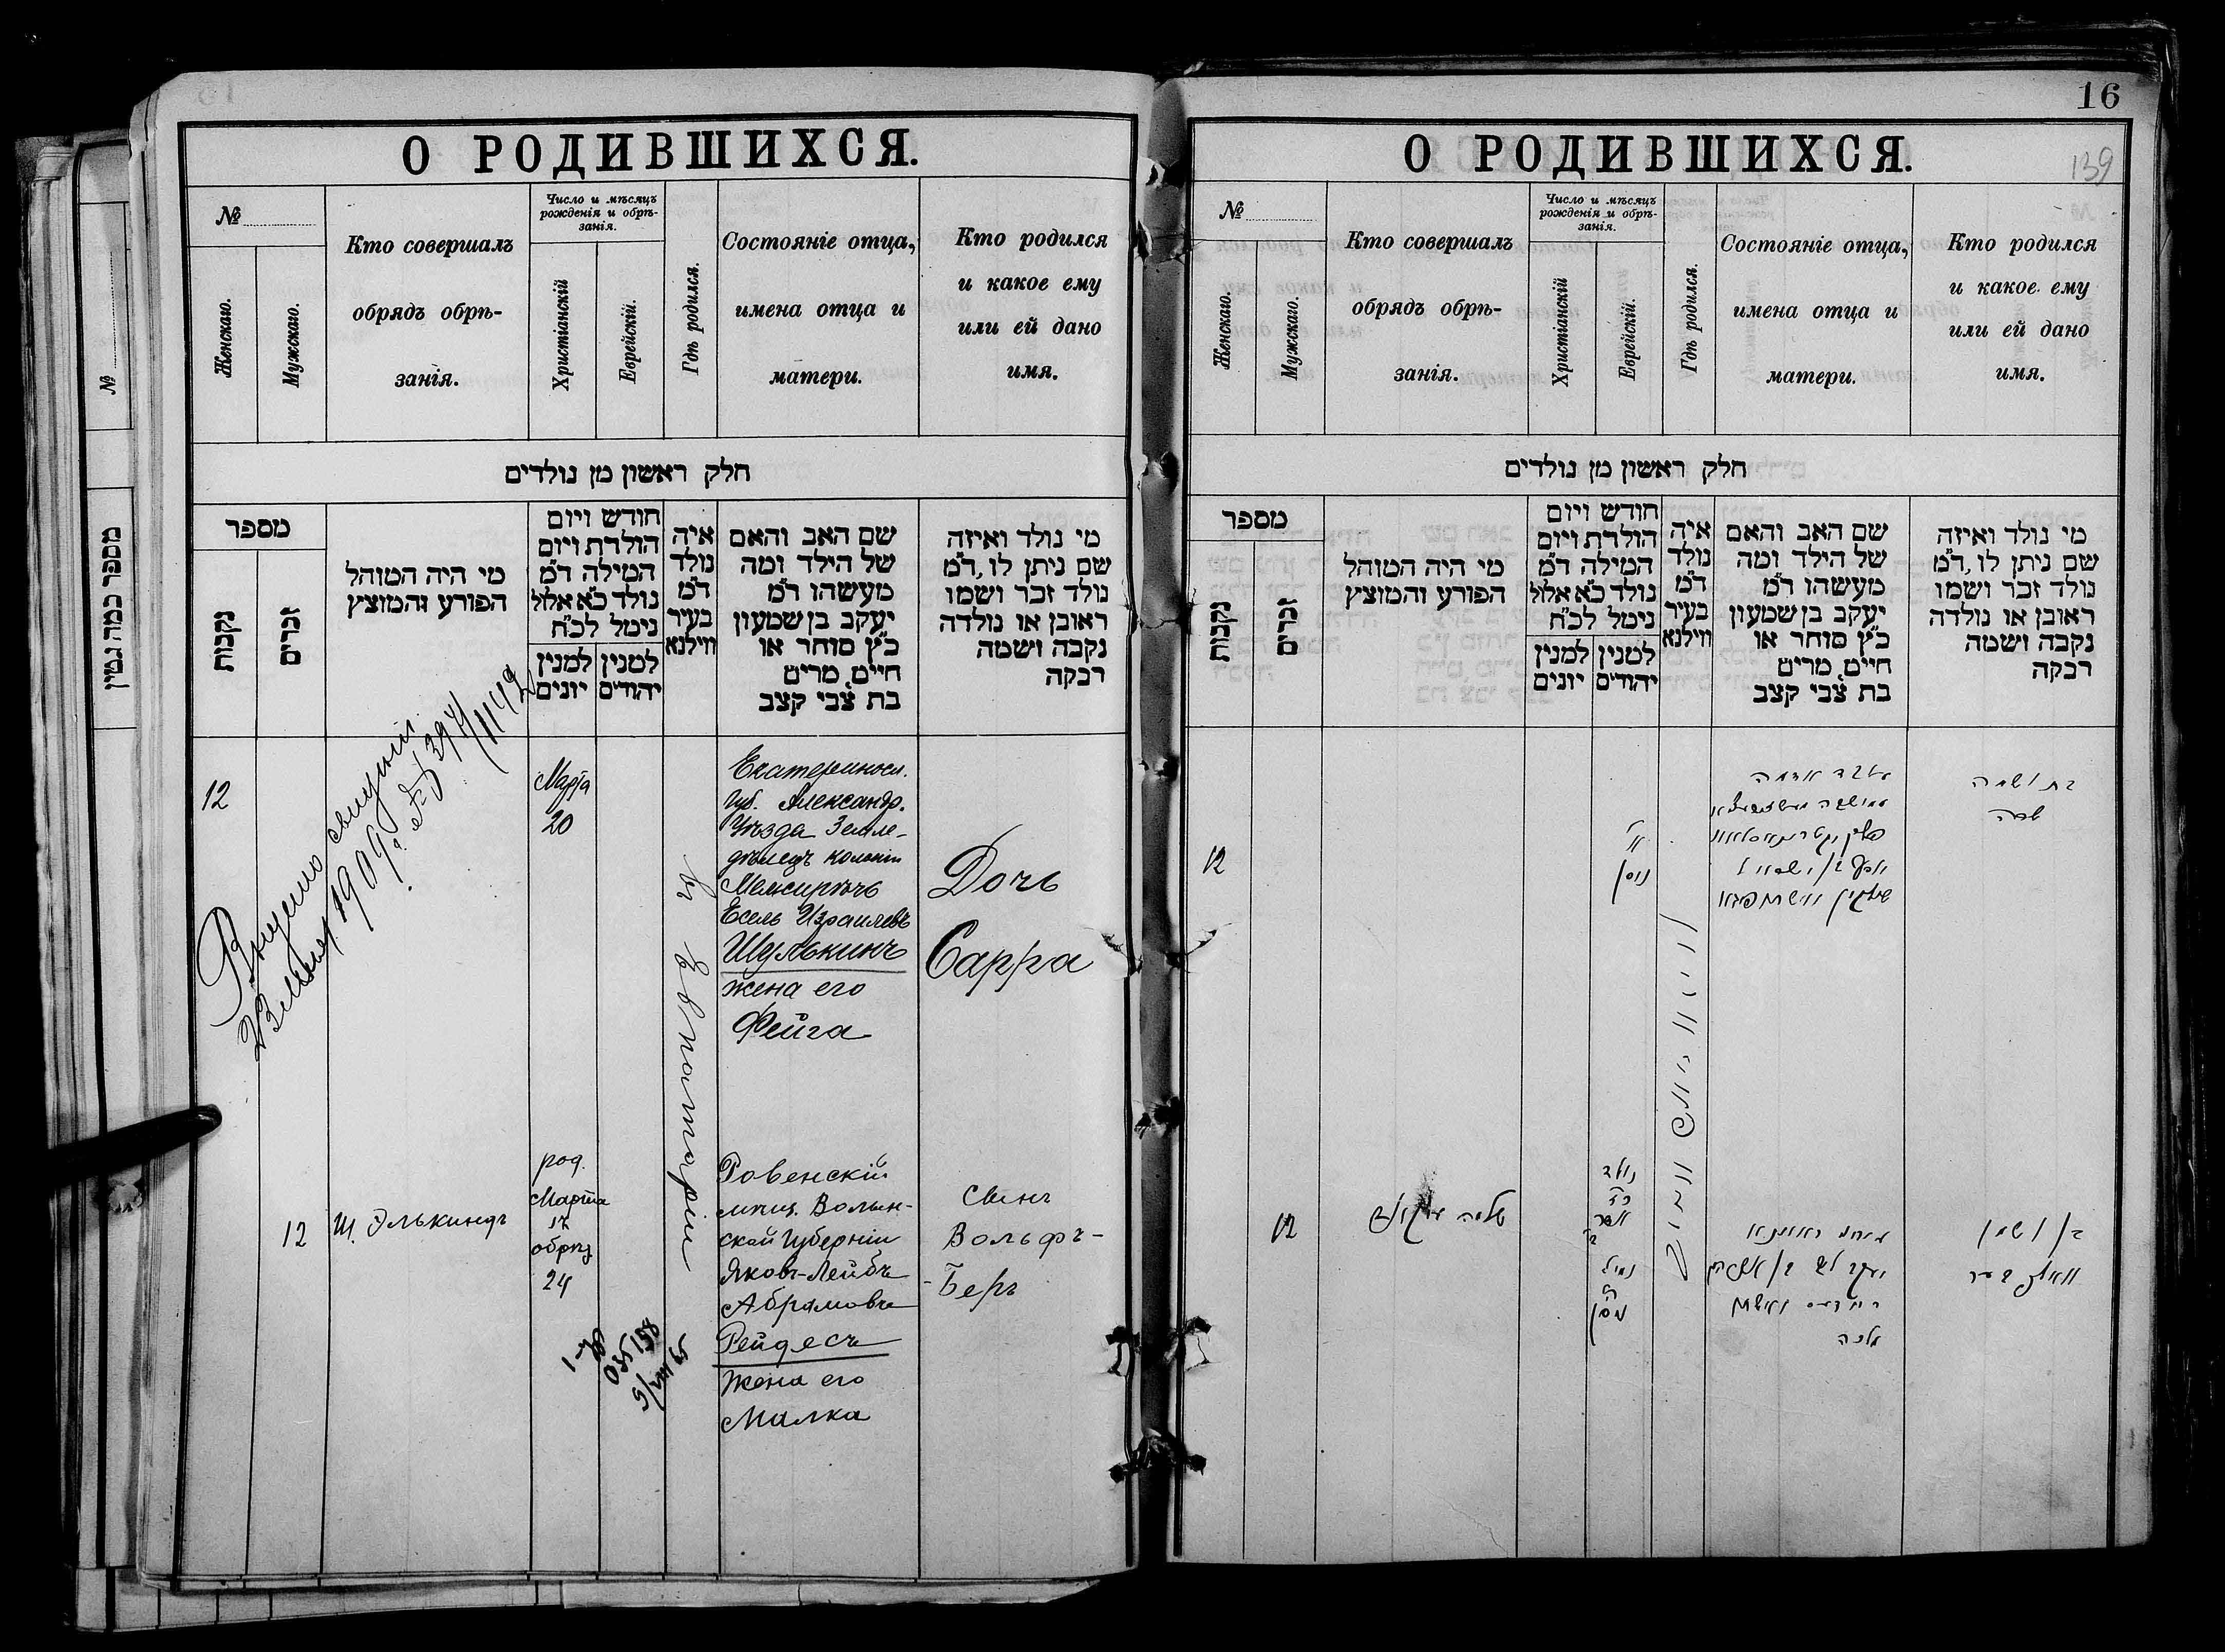 О РОДИВШИХСЯ.
№
Женскаго.
Мужскаго.
Кто совершалъ
обрядъ обрѣ-
занія.
Число и мѣсяцъ
рожденія и обрѣ-
занія.
Христіанскій
Еврейскій.
Гдѣ родился.
Состояніе отца,
имена отца и
матери.
Кто родился
и какое ему
или ей дано
имя.
חלק ראשון מן נולדים
מספר
נקבות
זכרים
מי היה המוהל
הפורע והמוצץ
חודש ויום
הולדת ויום
המילה ד״מ
נולד כ״א אלול
נימל לכ״ח
למנין
יונים
למנין
יהודים
איה
נולד
ד״מ
בעיר
ווילנא
שם האב והאם
של הילד ומה
מעשהו ד״מ
יעקב בן שמעון
כ״ץ סוחר או
חיים, מרים
בת צבי קצב
מי נולד ואיזה
שם ניתן לו, ד״מ
נולד זכר ושמו
ראובן או נולדה
נקבה ושמה
רבקה
№
מספר כמה גמין
12
Марта
20
Екатериносл.
Губ. Александр.
Уѣзда Земле-
дѣлецъ колоніи
Межирѣчъ
Есель Израилевъ
Шулькинъ
жена его
Фейга
Дочь
Сарра
Выдано
1909 г.
въ Евпаторіи
12
Ш. Элькиндъ
род.
Марта
17
обрѣз
24
Ровенскій
мѣщ. Волын-
ской Губерніи
Яковъ-Лейбъ
Абрамовъ
Рейдесъ
Жена его
Малка
Сынъ
Вольфъ-
-Беръ
035158
16
139
О РОДИВШИХСЯ.
№
Женскаго.
Мужскаго.
Кто совершалъ
обрядъ обрѣ-
занія.
Число и мѣсяцъ
рожденія и обрѣ-
занія.
Христіанскій
Еврейскій.
Гдѣ родился.
Состояніе отца,
имена отца и
матери.
Кто родился
и какое ему
или ей дано
имя.
חלק ראשון מן נולדים
מספר
נקבות
זכרים
מי היה המוהל
הפורע והמוצץ
חודש ויום
הולדת ויום
המילה ד״מ
נולד כ״א אלול
נימל לכ״ח
למנין
יונים
למנין
יהודים
איה
נולד
ד״מ
בעיר
ווילנא
שם האב והאם
של הילד ומה
מעשהו ד״מ
יעקב בן שמעון
כ״ץ סוחר או
חיים, מרים
בת צבי קצב
מי נולד ואיזה
שם ניתן לו, ד״מ
נולד זכר ושמו
ראובן או נולדה
נקבה ושמה
רבקה
12
ניסן
עובד אדמה
בת ושמה
שרה
12
שלמה
נולד
אדר
נמול
ניסן
יעקב ליב בן
ואשתו
מלכה
בן ושמו
וואלף בער